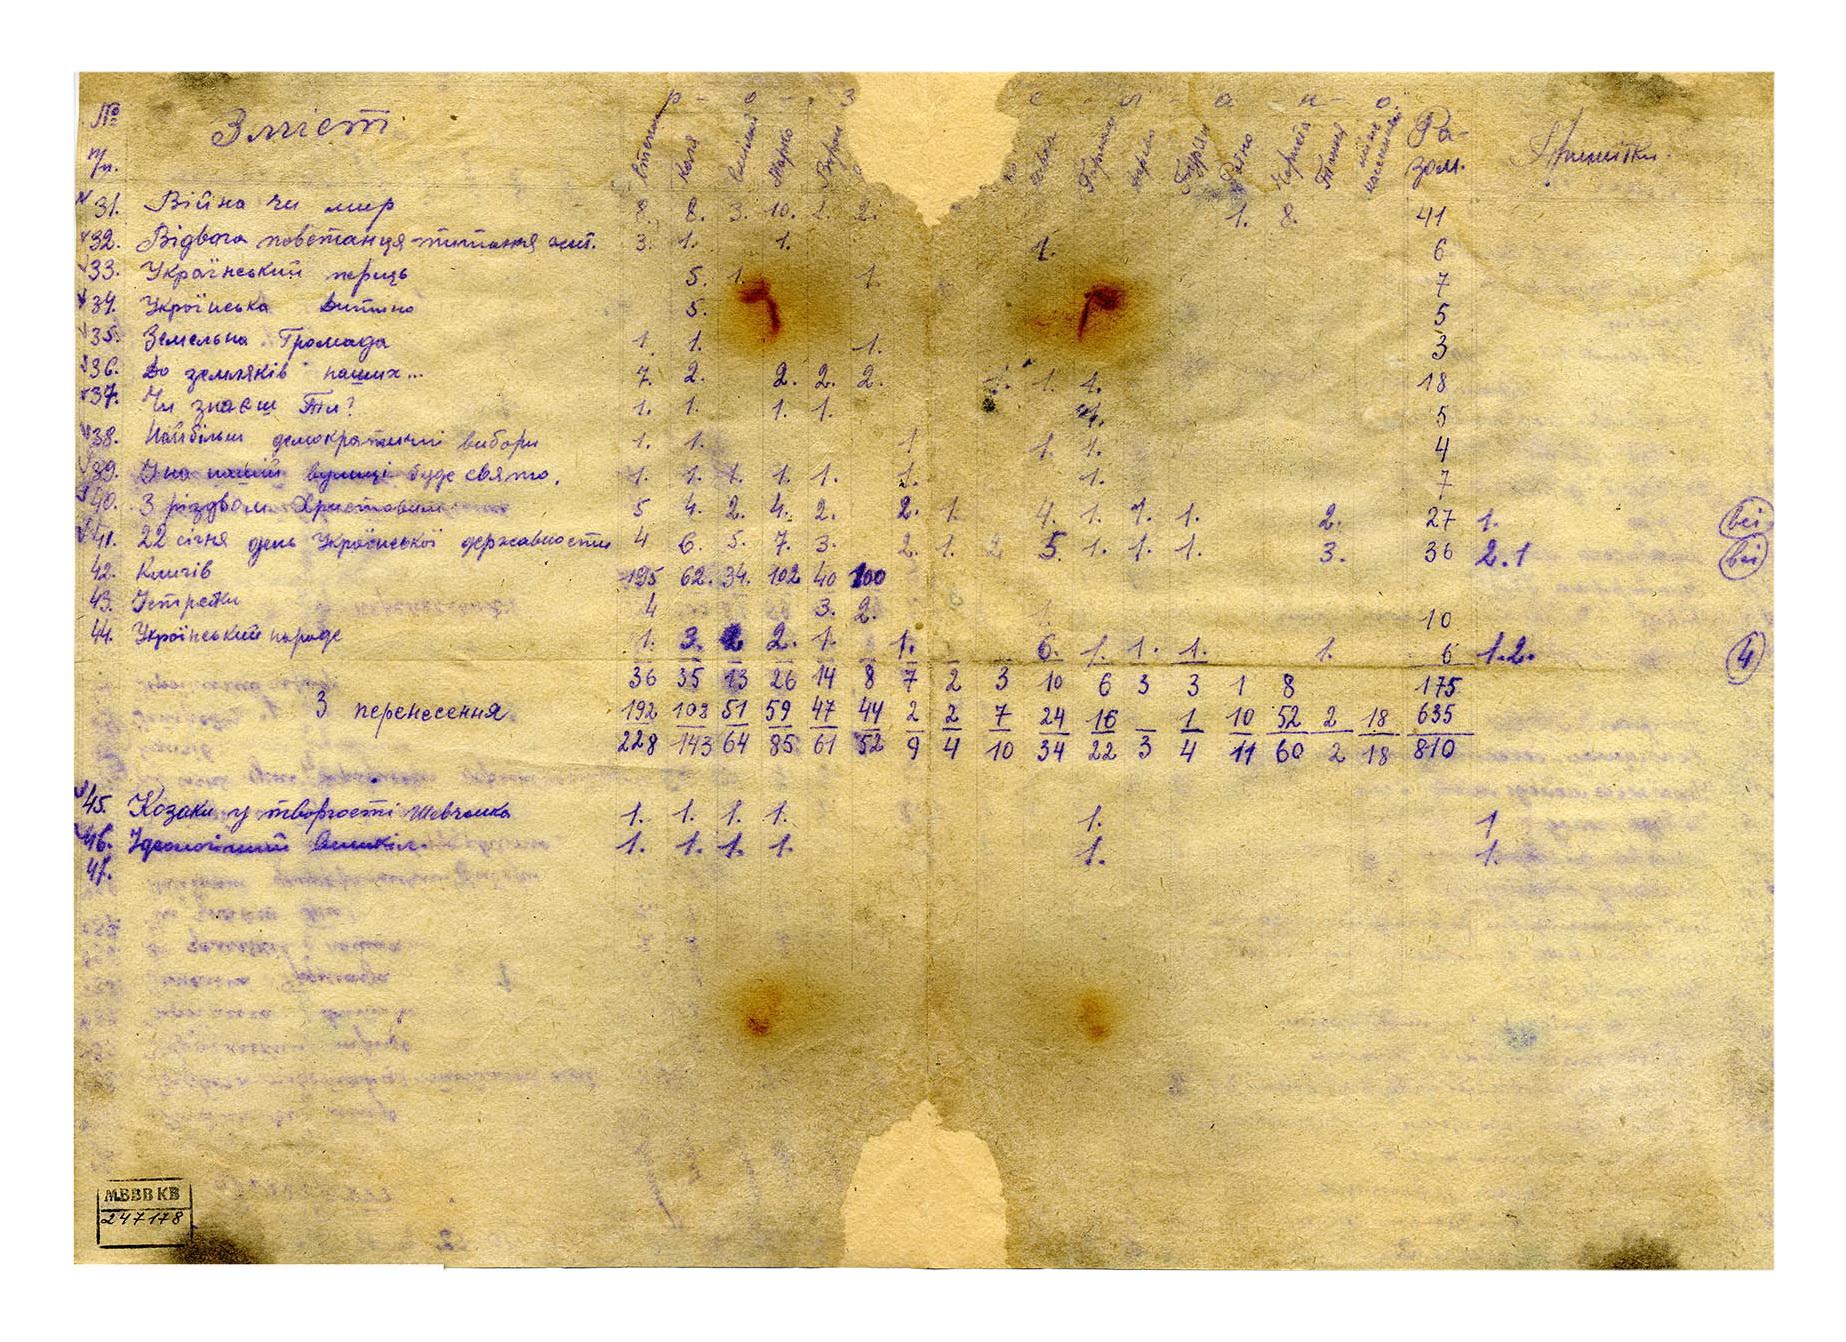 р - о - з с - л - а - н - о
№ п/п. Зміст Степ Коля Марко Ворон Бурян Рідно Чорнота Тиміш Ра-зом. Примітки.
31. Війна чи мир 8. 8. 3. 10. 2. 2. 1. 8. 41
32. Відвага повстанця 3. 1. 1. 1. 6
33. Український перець 5. 1. 1. 7
34. Українська дитино 5. 5
35. Земельна Громада 1. 1. 1. 3
36. До земляків наших... 7. 2. 2. 2. 2. 1. 1. 1. 18
37. Чи знаєш Ти? 1. 1. 1. 1. 1. 5
38. Найбільш демократичні вибори 1. 1. 1 1. 1. 4
39. І на нашій вулиці буде свято. 1. 1. 1. 1. 1. 1. 1. 7
40. З різдвом Христовим 5 4. 2. 4. 2. 2. 1. 4. 1. 1. 1. 2. 27 1. всі
41. 22 січня день Української державности 4 6. 5. 7. 3. 2. 1. 2 5. 1. 1. 1. 3. 36 2.1 всі
42. Кличів 195 62. 34. 102 40 100
43. Істрєжи 4 3. 2. 1. 10
44. Український народе 1. 3. 2. 2. 1. 1. 6. 1. 1. 1. 1. 6 1.2. 4
36 35 13 26 14 8 7 2 3 10 6 3 3 1 8 175
З перенесення 192 108 51 59 47 44 2 2 7 24 16 _ 1 10 52 2 18 635
228 143 64 85 61 52 9 4 10 34 22 3 4 11 60 2 18 810
45. Козаки у творчості Шевченка 1. 1. 1. 1. 1. 1
46. Ідеологічний Вишкіл. 1. 1. 1. 1. 1. 1.
47.
МВВВ КВ
247178